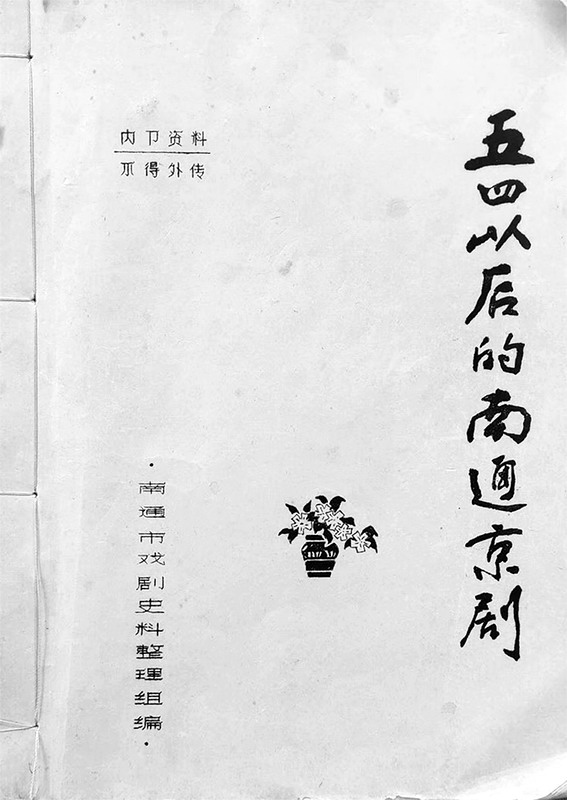 五四以后的南通京剧
内卩资料
不得外传
·南通市戏剧史料整理组编·